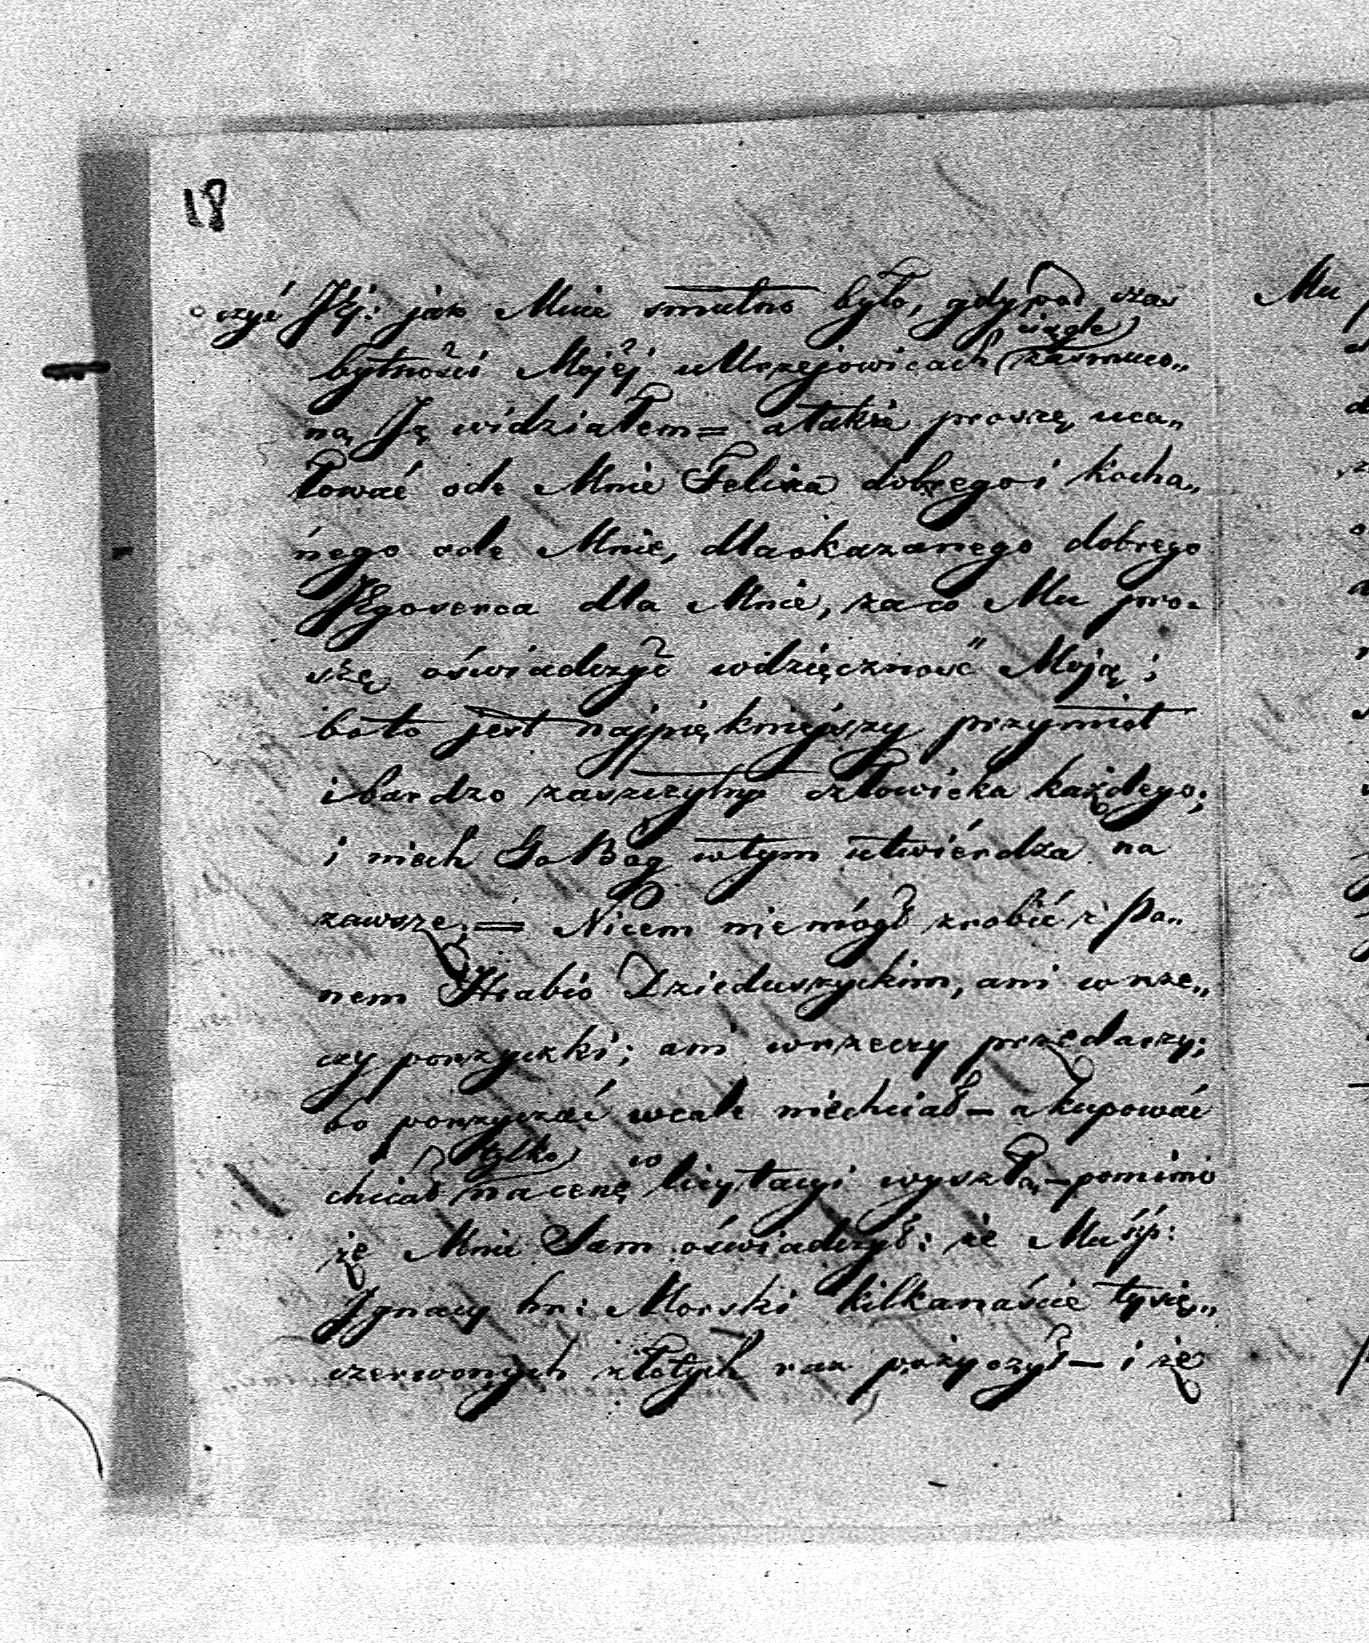 18
czyć Jéj: jak Mnie smutno było, gdy pod czas
bytności Mojéj u Mrzejowicach ciągle zasmuco„
ną Ją widziałem = a także proszę uca„
łować ode Mnie Felixa dobrego i kocha„
nego ode Mnie, dla okazanego dobrego
Jego serca dla Mnie, za co Mu pro„
szę oświadczyć wdzięczność Moją;
bo to jest najpiękniejszy przymiot
i bardzo zaszczytny człowieka każdego;
i niech Go Bóg w tym utwiérdza na
zawsze; = Nicem nie mógł zrobić z Pa„
nem Hrabią Dzieduszyckim, ani w rze„
czy porzyczki; ani w rzeczy przedarzy;
bo porzyczać wcale niechciał – a kupować
chciał tylko na cenę w licytacyi wyszłą, – pomimo
że Mnie Sam oświadczył: że Mu śp:
Ignacy hr: Morski kilkanaście tysię„
czerwonych złotych raz pożyczył – i że
Mu